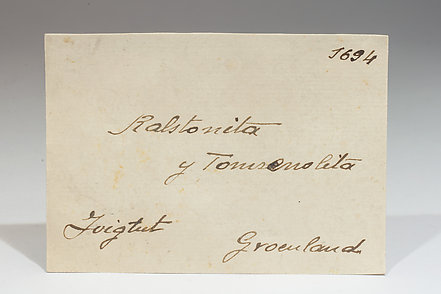 1694
Ralstonita
y Tomsenolita
Ivigtut
Groenland